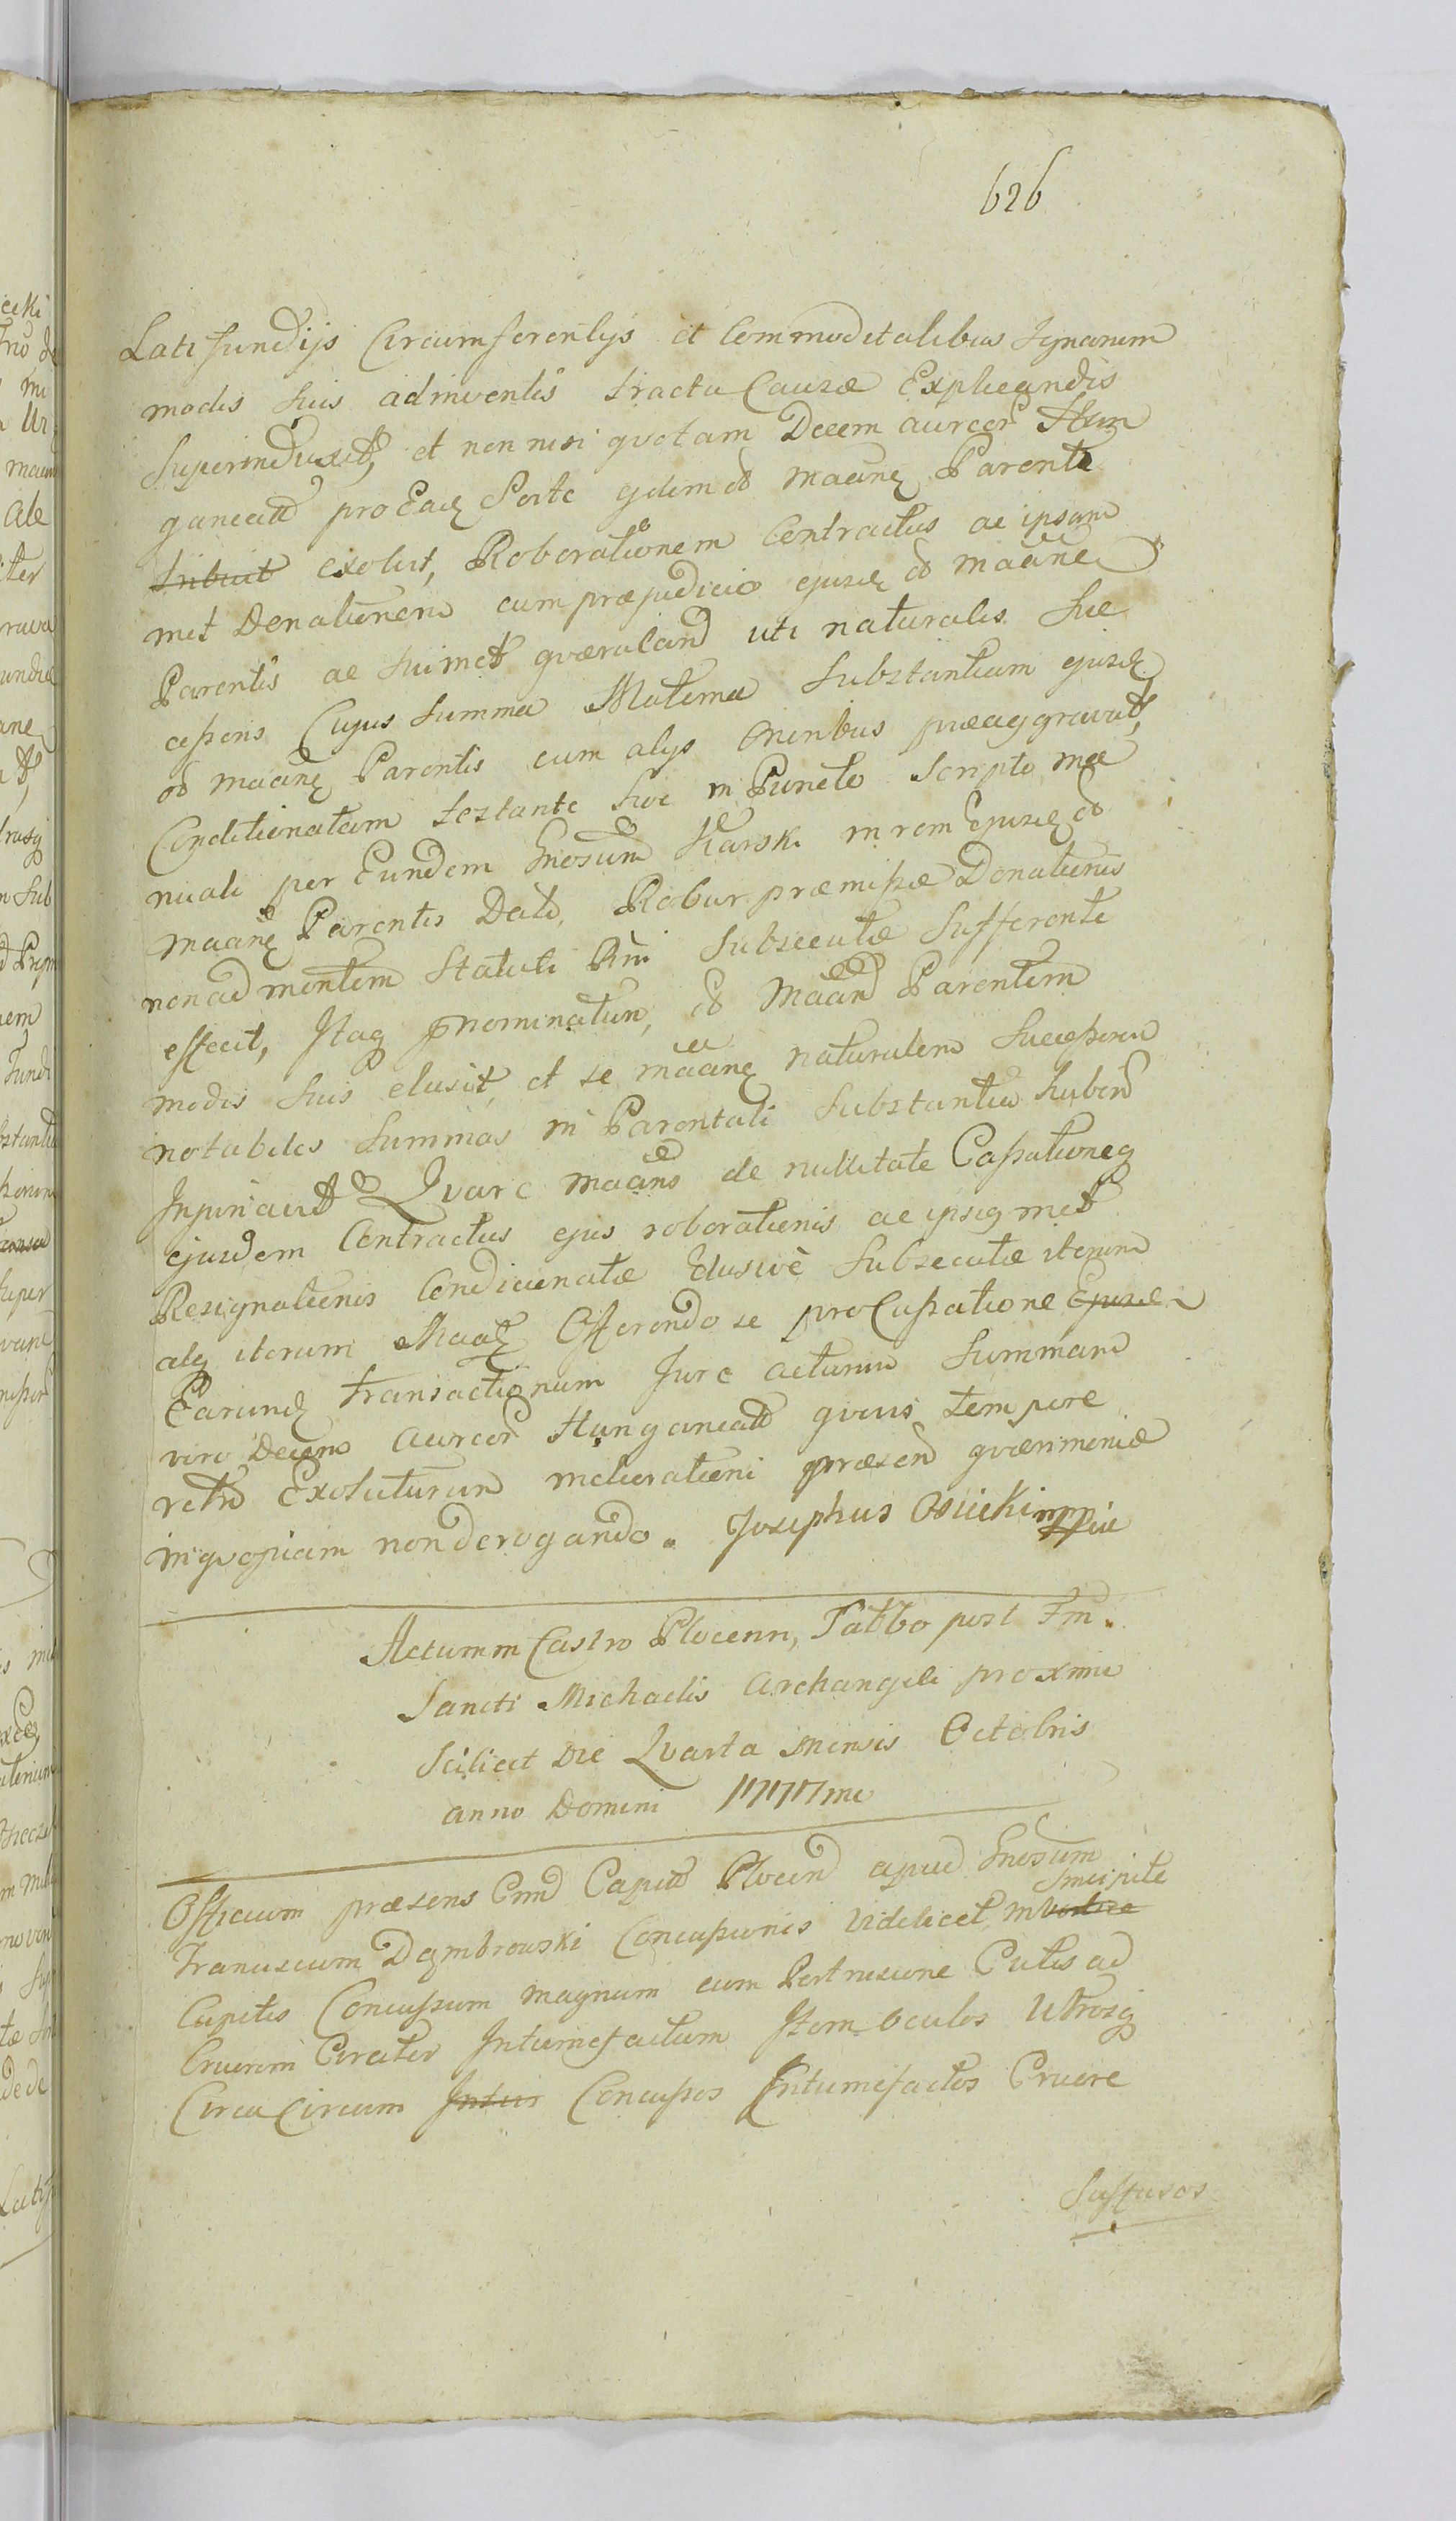 626
Latifundijs Circumferentijs et Commoditatibus Ignarum
modis suis adinventis tractu Causæ Explicandis
Superinduxit, et non nisi quotam Decem aureor Hun
garical pro Eadq Sorte eidem Maanq Parenti
tribuit exolvit, Roborationem Contractus ac ipsam
met Donationem cum præjudicio ejusdq Maanæ
Parentis ac suimet quærulanō uti naturalis Suc
cessoris Cujus Summa Materna Substantiam ejusdq
Maanq Parentis cum alijs Oneribus præaggravat,
Conditionatam testante sive in Puncto Scripto ma
nuali per Eundem Gnosum Karski in rem Ejusdq
Maanæ Parentis Dato, Robur præmissæ Donationis
non ad mentem Statuti Rni Subsecutæ Sufferente
effecit, Itaq prnominatum, Maanō Parentem
modis suis elusit, et se Maanq naturalem Successorem
notabiles Summas in Parentali Substantia habenō
Injuriavit Quare Maans de nullitate Cassationeq
ejusdem Contractus ejus roborationis ac ipsiqmet
Resignationis Condicionatæ Elusivè Subsecutæ iterum
atq iterum Maatq Offerendo se pro Cassatione Ejusd
Earundq transactionum Jure acturum Summam
vero Decem Aureor Hungarical quovis tempore
retro Exoluturum meliorationi præsen quærimoniæ
in quopiam non derogando. Josephus Osiecki mppia
Actum in Castro Plocenn, Sabbo post Fm.
Sancti Michaelis Archangeli proximo
Scilicet Die Quarta Mensis Octobris
anno Domini 1777mo
Officium præsens Cnnō Capit Plocen apud Gnosum
Sincipite
Franciscum Dąmbrowski Concussionis Videlicet, in vertice
Capitis Concussum magnum cum Pertrusione Cutis ad
Cruorem Circiter Intumefactum Item oculos Utrosq
Circu Circum Intur Concussos Intumefactos Cruore
Suffusos